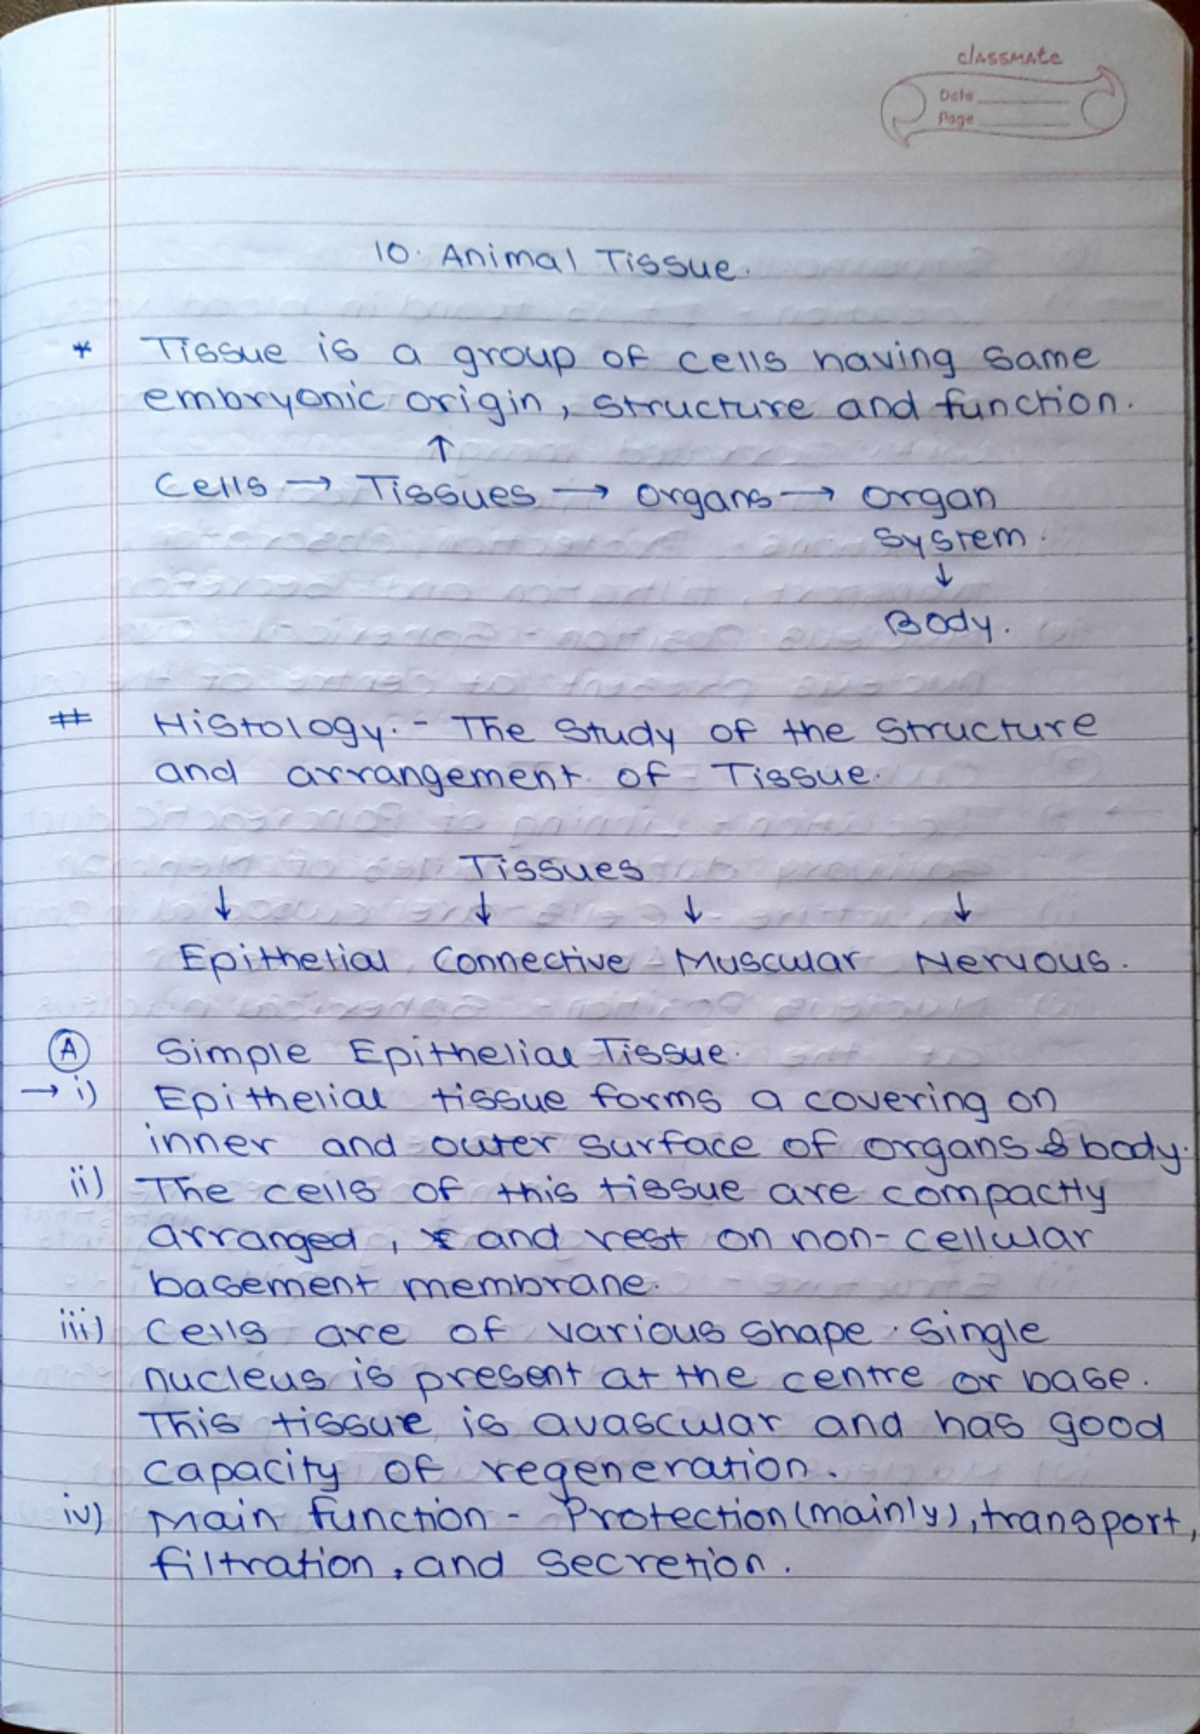 classmate
Date
Page
10. Animal Tissue.
* Tissue is a group of cells having same
embryonic origin, structure and function.
↑
Cells → Tissues → Organs → Organ
System.
↓
Body.
# Histology. - The Study of the Structure
and arrangement of Tissue.
Tissues
↓ ↓ ↓ ↓
Epithelial Connective Muscular Nervous.
(A) Simple Epithelial Tissue.
→ i) Epithelial tissue forms a covering on
inner and outer surface of organs & body.
ii) The cells of this tissue are compactly
arranged, and rest on non-cellular
basement membrane.
iii) Cells are of various shape. Single
nucleus is present at the centre or base.
This tissue is avascular and has good
capacity of regeneration.
iv) Main function - Protection (mainly), transport,
filtration, and secretion.